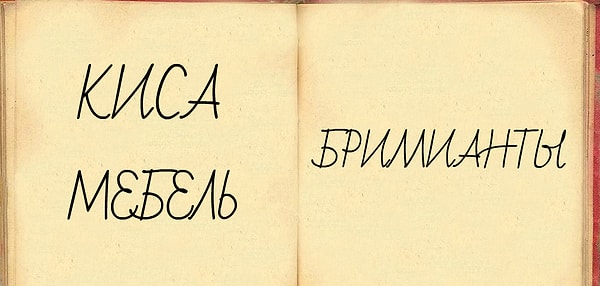 КИСА
МЕБЕЛЬ
БРИМИАНТЫ